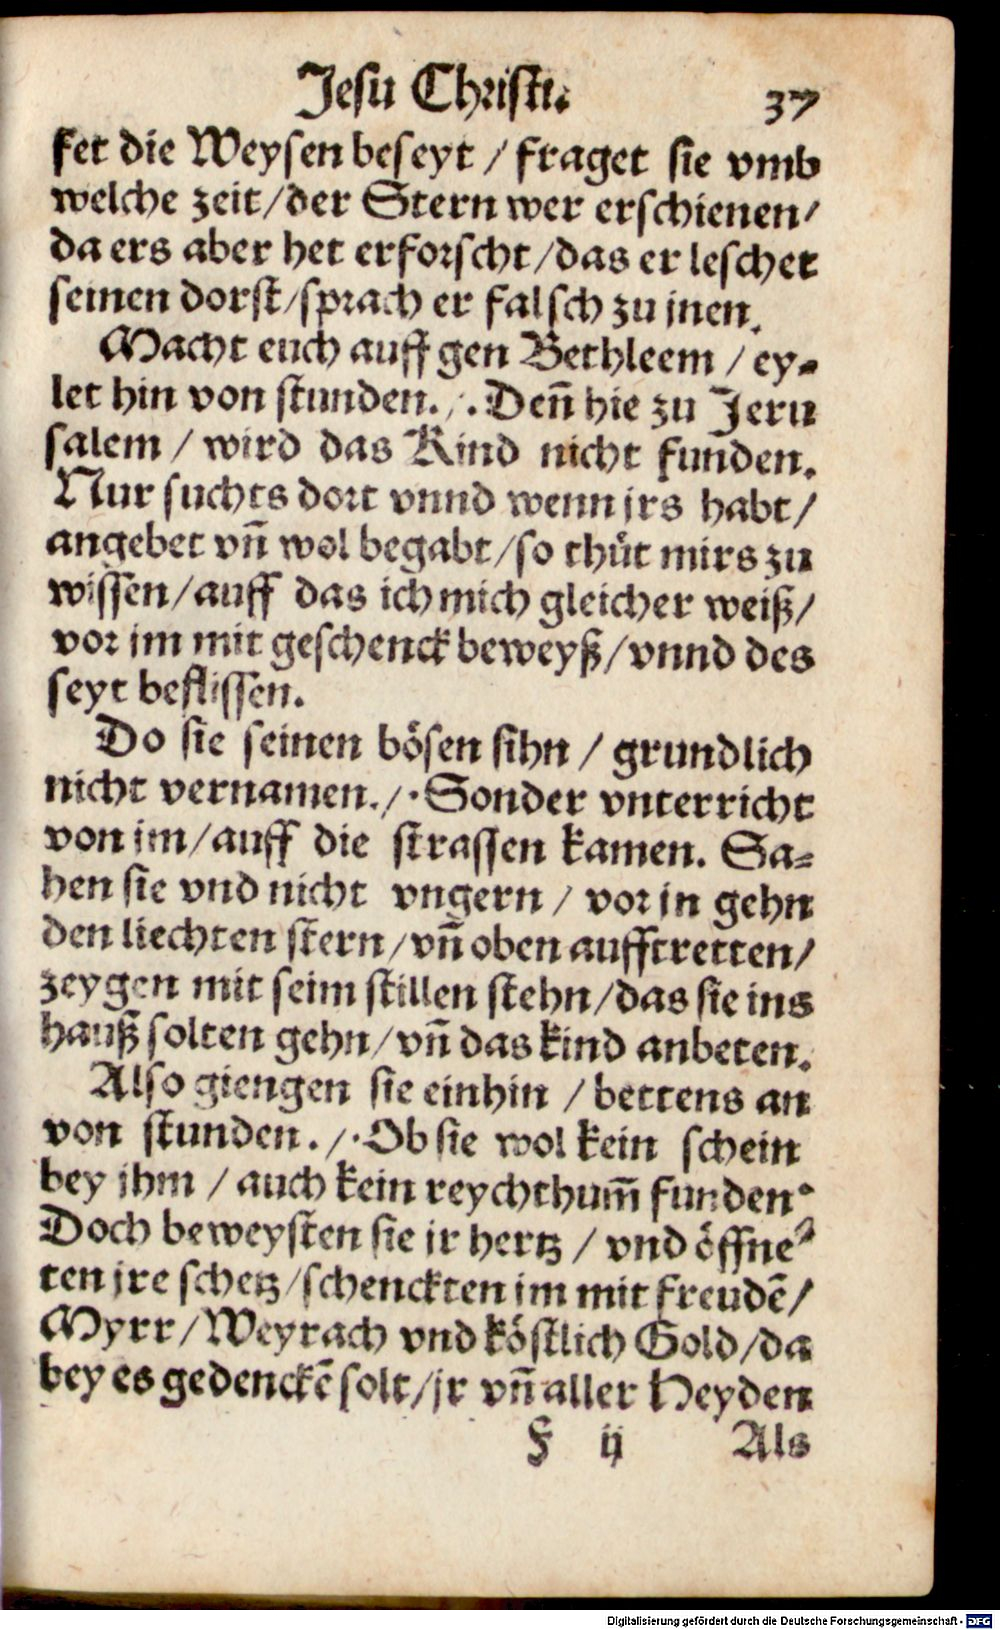 Jesu Christi. 37
fet die Weysen beseyt / fraget sie vmb
welche zeit / der Stern wer erschienen /
da ers aber het erforscht / das er leschet
seinen dorst / sprach er falsch zu jnen.
Macht euch auff gen Bethleem / ey⸗
let hin von stunden. /. Deñ hie zu Jeru
salem / wird das Kind nicht funden.
Nur suchts dort vnnd wenn jrs habt /
angebet vñ wol begabt / so thůt mirs zu
wissen / auff das ich mich gleicher weiß /
vor jm mit geschenck beweyß / vnnd des
seyt beflissen.
Do sie seinen bösen sihn / grundlich
nicht vernamen. /. Sonder vnterricht
von jm / auff die strassen kamen. Sa⸗
hen sie vnd nicht vngern / vor jn gehn
den liechten stern / vñ oben aufftretten /
zeygen mit seim stillen stehn / das sie ins
hauß solten gehn / vñ das kind anbeten.
Also giengen sie einhin / bettens an
von stunden. /. Ob sie wol kein schein
bey jhm / auch kein reychthum̃ funden.
Doch beweysten sie jr hertz / vnd öffne⸗
ten jre schetz / schenckten jm mit freudē /
Myrr / Weyrach vnd köstlich Gold / da
bey es gedenckē solt / jr vñ aller Heyden
F ij Als
Digitalisierung gefördert durch die Deutsche Forschungsgemeinschaft - DFG